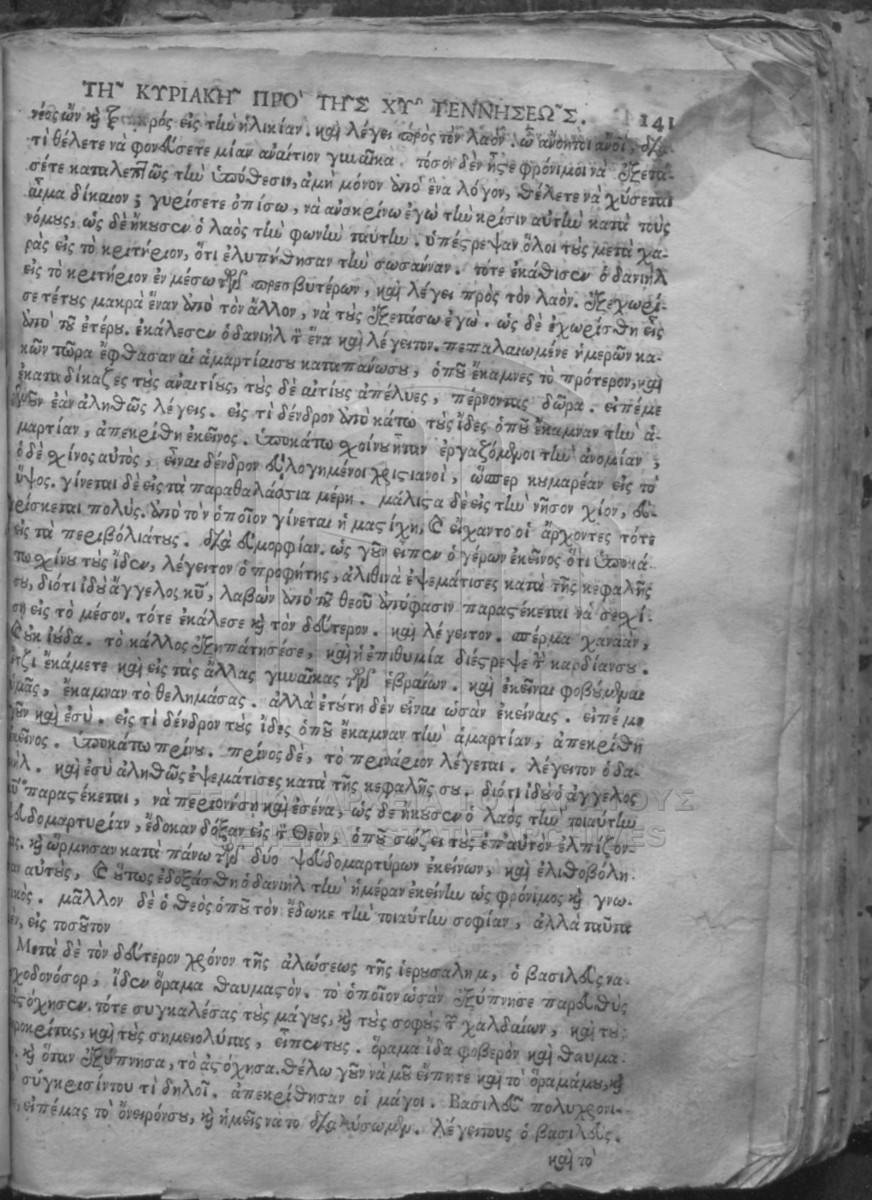 ΤΗ͂ ΚΥΡΙΑΚΗ͂ ΠΡΟ` ΤΗ͂Σ ΧΥ͂ ΓΕΝΝΗΣΕΩ͂Σ. 141
νέος ὢν καὶ μικρός εἰς τὴν ἡλικίαν. καὶ λέγει πρὸς τὸν λαόν. ὦ ἀνόητοι ἀνοί, δια
τὶ θέλετε νὰ φονεύσετε μίαν ἀναίτιον γυναῖκα. τόσον δὲν ἦςε φρόνιμοι νὰ ἐξετά-
σέτε καταλεπῶς τὴν ὑπόθεσιν, ἀμὴ μόνον ἀπὸ ἕνα λόγον, θέλετε νὰ χύσεται
αἷμα δίκαιον; γυρίσετε ὀπίσω, νὰ ἀνακρίνω ἐγὼ τὴν κρίσιν αὐτὴν κατὰ τοὺς
νόμους, ὡς δὲ ἤκουσεν ὁ λαὸς τὴν φωνὴν ταύτην. ὑπέςρεψαν ὅλοι τους μετὰ χα-
ρᾶς εἰς τὸ κριτήριον, ὅτι ἐλυπήθησαν τὴν σωσάνναν. τότε ἐκάθισεν ὁ δανιὴλ
εἰς τὸ κριτήριον ἐν μέσω τῶν πρεσβυτέρων, καὶ λέγει πρὸς τὸν λαόν. ξεχωρί-
σε τέτους μακρὰ ἕναν ἀπὸ τὸν ἄλλον, νὰ τοὺς ἐξετάσω ἐγώ. ὡς δὲ ἐχωρίσθη εἷς
ἀπὸ τοῦ ἑτέρου. ἐκάλεσεν ὁ δανιὴλ τὸν ἕνα καὶ λέγειτον. πεπαλαιωμένε ἡμερῶν κα-
κῶν τώρα ἔφθασαν αἱ ἁμαρτίαισου καταπάνωσου, ὁποῦ ἔκαμνες τὸ πρότερον, καὶ
ἐκαταδίκαζες τοὺς ἀναιτίους, τοὺς δὲ αἰτίους ἀπέλυες, πέρνοντας δῶρα. εἰπέμε
γοῦν ἐὰν ἀληθῶς λέγεις. εἰς τὶ δένδρον ἀπὸ κάτω τοὺς ἶδες ὁποῦ ἔκαμναν τὴν ἁ-
μαρτίαν, ἀπεκρίθη ἐκεῖνος. ὑποκάτω σχίνου ἦταν ἐργαζόμενοι τὴν ἀνομίαν;
ὁ δὲ σχίνος αὐτὸς, εἶναι δένδρον εὐλογημένοι χριςιανοί, ὥσπερ κυμαρέαν εἰς τὸ
ὕψος. γίνεται δὲ εἰς τὰ παραθαλάσσια μέρη. μάλιςα δὲ εἰς τὴν νῆσον χίον, εὑ-
ρίσκεται πολύς. ἀπὸ τὸν ὁποῖον γίνεται ἡ μαςίχη, καὶ εἴχαντο οἱ ἄρχοντες τότε
εἰς τὰ περιβόλιάτους. διὰ εὐμορφίαν. ὡς γοῦν εἶπεν ὁ γέρων ἐκεῖνος ὅτι ὑποκά-
τω σχίνου τοὺς ἶδεν, λέγειτον ὁ προφήτης, ἀλιθινὰ ἐψεμάτισες κατὰ τῆς κεφαλῆς
σου, διότι ἰδοὺ ἄγγελος κῦ, λαβὼν ἀπὸ τοῦ θεοῦ ἀπόφασιν παραςέκεται νὰ σεσχί-
ση εἰς τὸ μέσον. τότε ἐκάλεσε καὶ τὸν δεύτερον. καὶ λέγειτον. σπέρμα χαναὰν,
καὶ οὐκ ἰούδα. τὸ κάλλος ἐξηπάτησέσε, καὶ ἡ ἐπιθυμία διέςρεψε τὴν καρδίανσου.
ἔτζι ἐκάμετε καὶ εἰς τὰς ἄλλας γυναῖκας τῶν ἑβραίων. καὶ ἐκεῖναι φοβούμεναι
ὑμᾶς, ἔκαμναν τὸ θελημάσας. ἀλλὰ ἐτούτη δὲν εἶναι ὡσὰν ἐκείναις. εἰπέ με
γοῦν καὶ ἐσὺ. εἰς τὶ δένδρον τοὺς ἶδες ὁποῦ ἔκαμναν τὴν ἁμαρτίαν, ἀπεκρίθη
ἐκεῖνος. ὑποκάτω πρίνου. πρίνος δὲ, τὸ πρινάριον λέγεται. λέγειτον ὁ δα-
νιήλ. καὶ ἐσὺ ἀληθῶς ἐψεμάτισες κατὰ τῆς κεφαλῆς σου. διότι ἰδοὺ ὁ ἄγγελος
κῦ παραςέκεται, νὰ περιονίση καὶ ἐσένα, ὡς δὲ ἤκουσεν ὁ λαὸς τὴν ποιαύτην
ψευδομαρτυρίαν, ἔδοκαν δόξαν εἰς τὸν Θεὸν, ὁποῦ σώζει τοὺς ἐπαυτὸν ἐλπίζον-
τας. καὶ ὥρμησαν κατὰ πάνω τῶν δύο ψευδομαρτύρων ἐκείνων, καὶ ἐλιθοβόλη-
σαν αὐτοὺς, καὶ οὕτως ἐδοξάσθη ὁ δανιὴλ τὴν ἡμέραν ἐκείνην ὡς φρόνιμος καὶ γνω-
ςικός. μᾶλλον δὲ ὁ θεὸς ὁποῦ τὸν ἔδωκε τὴν τοιαύτην σοφίαν, ἀλλὰ ταῦτα
μὲν, εἰς τοσοῦτον
Μετὰ δὲ τὸν δεύτερον χρόνον τῆς ἁλώσεως τῆς ἱερουσαλὴμ, ὁ βασιλεὺς να-
βουχοδονόσορ, ἶδεν ὅραμα θαυμαςόν. τὸ ὁποῖον ὡσὰν ἐξύπνησε παρευθὺς
ἀςόχησεν. τότε συγκαλέσας τοὺς μάγους, καὶ τοὺς σοφοὺς τῶν χαλδαίων, καὶ τοὺς
ὀνειροκρίτας, καὶ τοὺς σημειολύτας, εἶπεντους. ὅραμα ἶδα φοβερὸν καὶ θαυμα-
ςόν. καὶ ὅταν ἐξύπνησα, τὸ ἀςόχησα. θέλω γοῦν νὰ μοῦ εἴπητε καὶ τὸ ὅραμάμου, καὶ
τὴν σύγκρισίντου τὶ δηλοῖ. ἀπεκρίθησαν οἱ μάγοι. Βασιλεῦ πολυχρονι-
σμένε, εἰπέμας τὸ ὄνειρόνσου, καὶ ἡμεῖς νατο διαλύσωμεν. λέγειτους ὁ βασιλεύς.
καὶ τὸ
ΓΕΝΙΚΑ ΑΡΧΕΙΑ ΤΟΥ ΚΡΑΤΟΥΣ
GENERAL STATE ARCHIVES